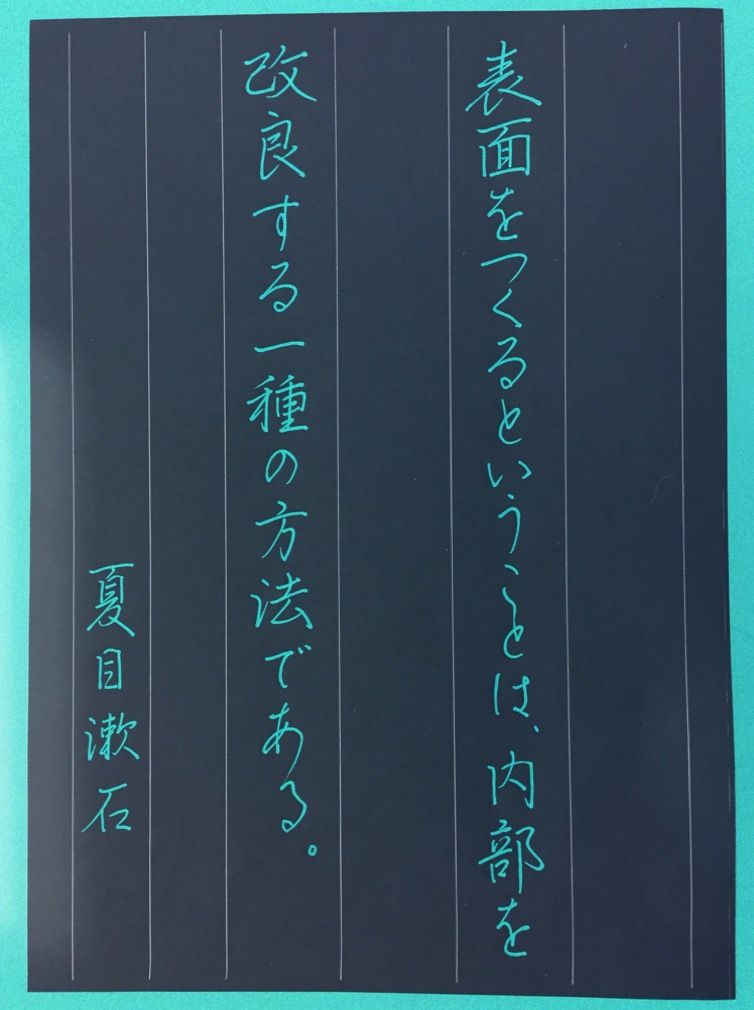 表面をつくるということは、内部を
改良する一種の方法である。
夏目漱石